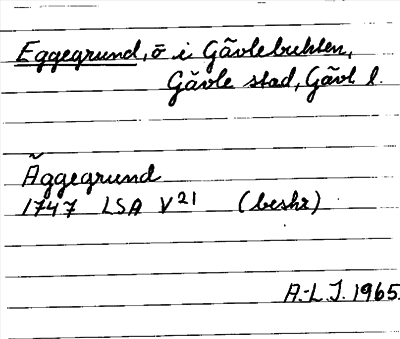 Eggegrund, ö i Gävlebukten,
Gävle stad, Gävl l.
Äggegrund
1747 LSA V21 (beskr)
A.-L J. 1965.